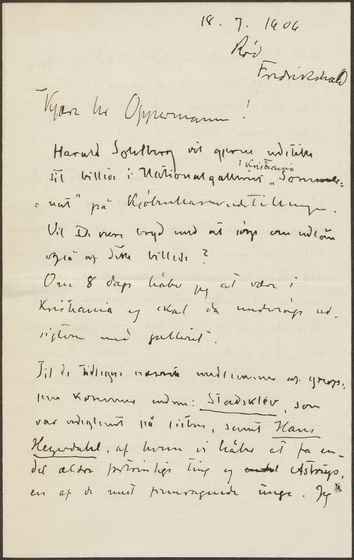 18. 7. 1906
Röd
Fredrikshald
Kjære Hr Oppermann!
Harald Sohlberg vil gjerne udstille
sit billede i Nationalgalleriet i Kristiania "Sommer-
nat" på Kjöbenhavnerudstillingen.
Vil De være brydd med at sörge om udlån
også af dette billede?
Om 8 dage håber jeg at være i
Kristiania og skal da underhandle
med galleriet.
Til de tidligere nævnte medlemmer af grup-
pen kommer endnu: Stadskleiv, som
var udeglemt på listen, samt Hans
Heyerdahl, af hvem vi håber at få en-
del ældre fortrinlige ting og Astrup,
en af de mest fremragende unge. Jeg